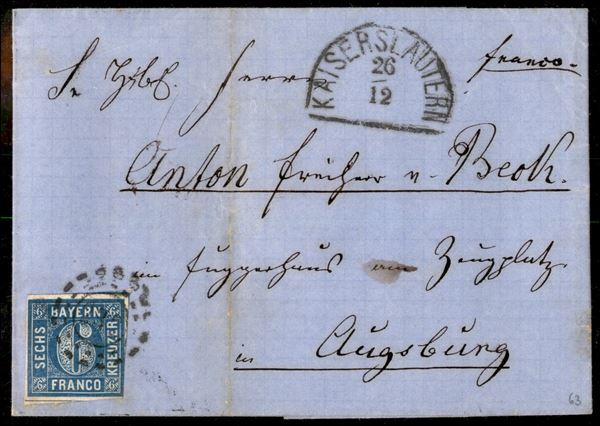 franco.
KAISERSLAUTERN
26
12
Sr Herrn
Anton Freiherr v. Beck.
im Fuggerhaus am Zeugplatz
in Augsburg
BAYERN
SECHS 6 KREUZER
FRANCO
6 6
6 6
63